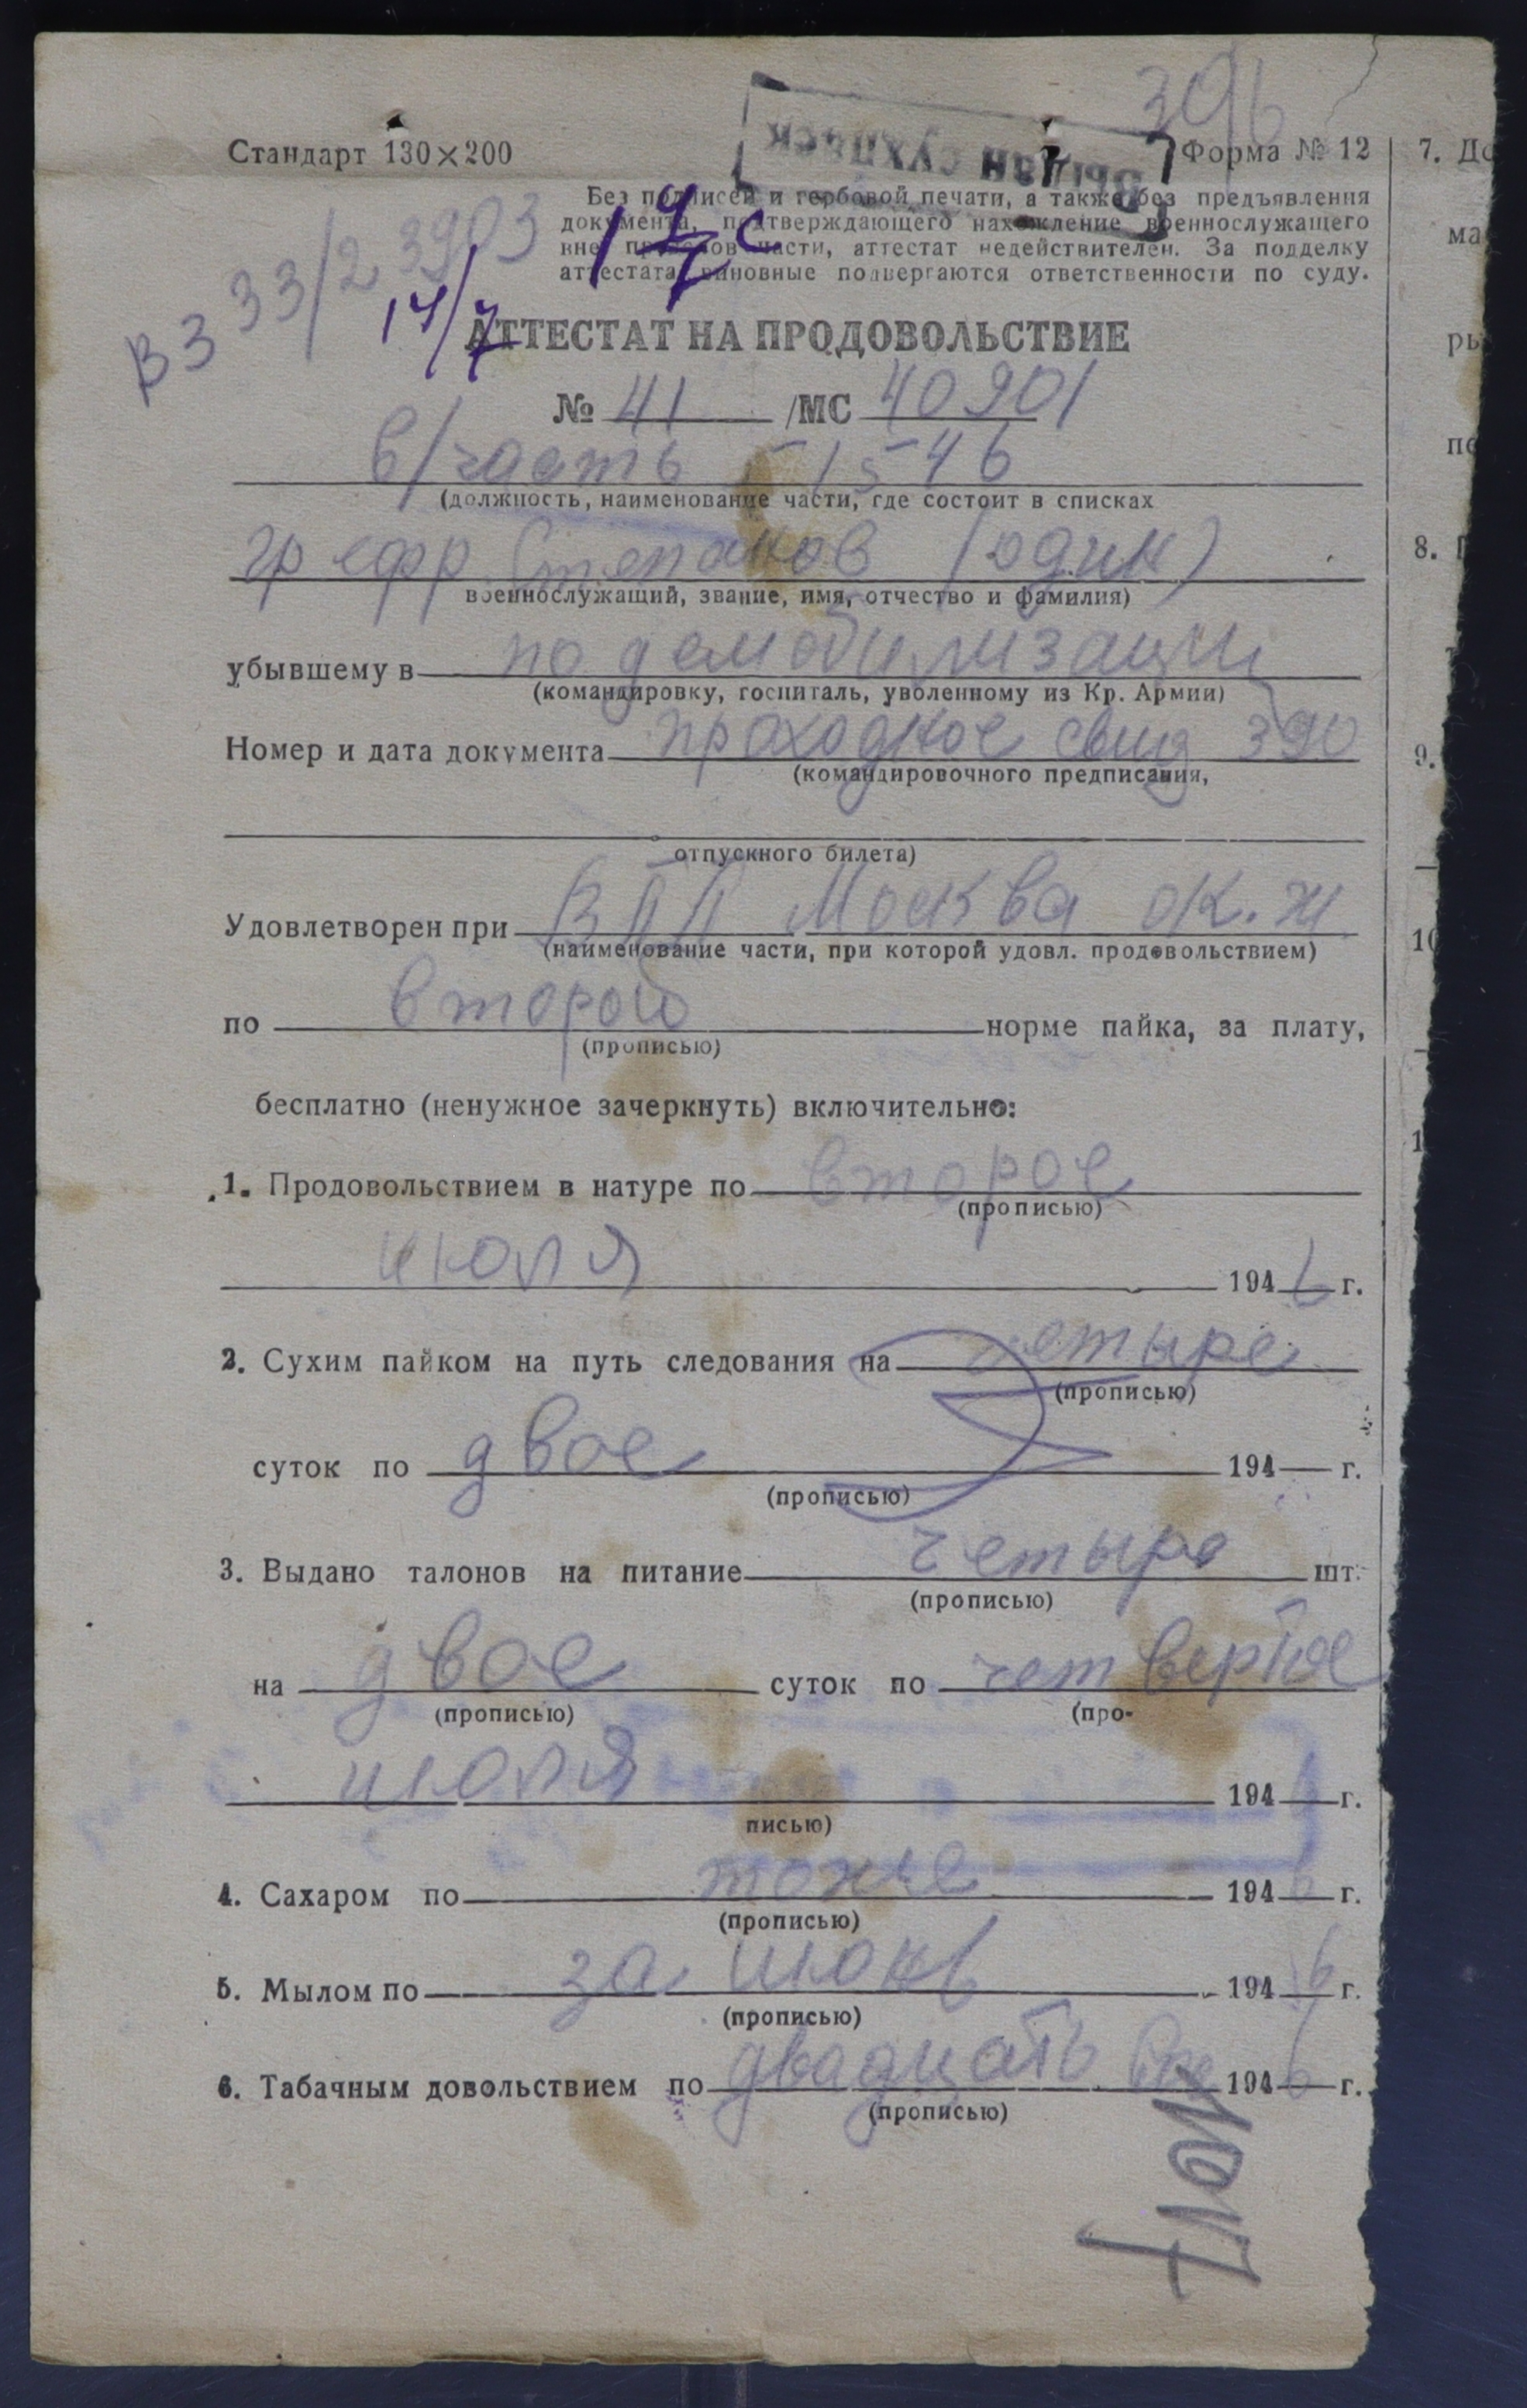 396
Стандарт 130×200
Форма № 12
ВЫДАН СУХПАЕК
Без подписей и гербовой печати, а также без предъявления
документа, подтверждающего нахождение военнослужащего
вне продов части, аттестат недействителен. За подделку
аттестата виновные подвергаются ответственности по суду.
ВЗ 33/2 3903
14/7
АТТЕСТАТ НА ПРОДОВОЛЬСТВИЕ
№ 41 /МС 40901
в/часть 51546
(должность, наименование части, где состоит в списках
гр ефр Степанов (один)
военнослужащий, звание, имя, отчество и фамилия)
убывшему в по демобилизации
(командировку, госпиталь, уволенному из Кр. Армии)
Номер и дата документа проходное свид 390
(командировочного предписания,
отпускного билета)
Удовлетворен при ВПП Москва ок. ж
(наименование части, при которой удовл. продовольствием)
по второй норме пайка, за плату,
(прописью)
бесплатно (ненужное зачеркнуть) включительно:
1. Продовольствием в натуре по второе
(прописью)
июля 1946 г.
2. Сухим пайком на путь следования на четыре
(прописью)
суток по двое 194 г.
(прописью)
3. Выдано талонов на питание четыре шт.
(прописью)
на двое суток по четвертое
(прописью) (про-
июля 1946 г.
писью)
4. Сахаром по тоже 1946 г.
(прописью)
5. Мылом по за июнь 1946 г.
(прописью)
6. Табачным довольствием по двадцать 1946 г.
(прописью)
7.
8.
9.